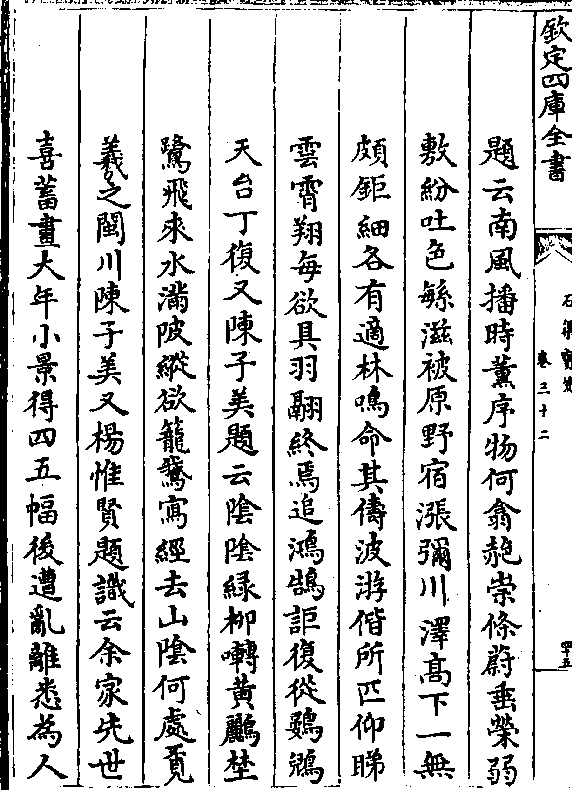 欽定四庫全書
石渠寶笈
卷三十二
四十五
題云南風播時薫序物何翕赩崇條蔚垂榮弱
敷紛吐色緐滋被原野宿漲彌川澤髙下一無
頗鉅細各有適林鳴命其儔波游偕所匹仰睇
雲霄翔每欲具羽翮終焉追鴻鵠詎復從鷃鷃
天台丁復又陳子美題云陰陰緑柳囀黄鸝埜
鷺飛來水滿陂縱欲籠鵞寫經去山陰何處覓
羲之閩川陳子美又楊惟賢題識云余家先世
喜蓄畫大年小景得四五幅後遭亂離悉為人